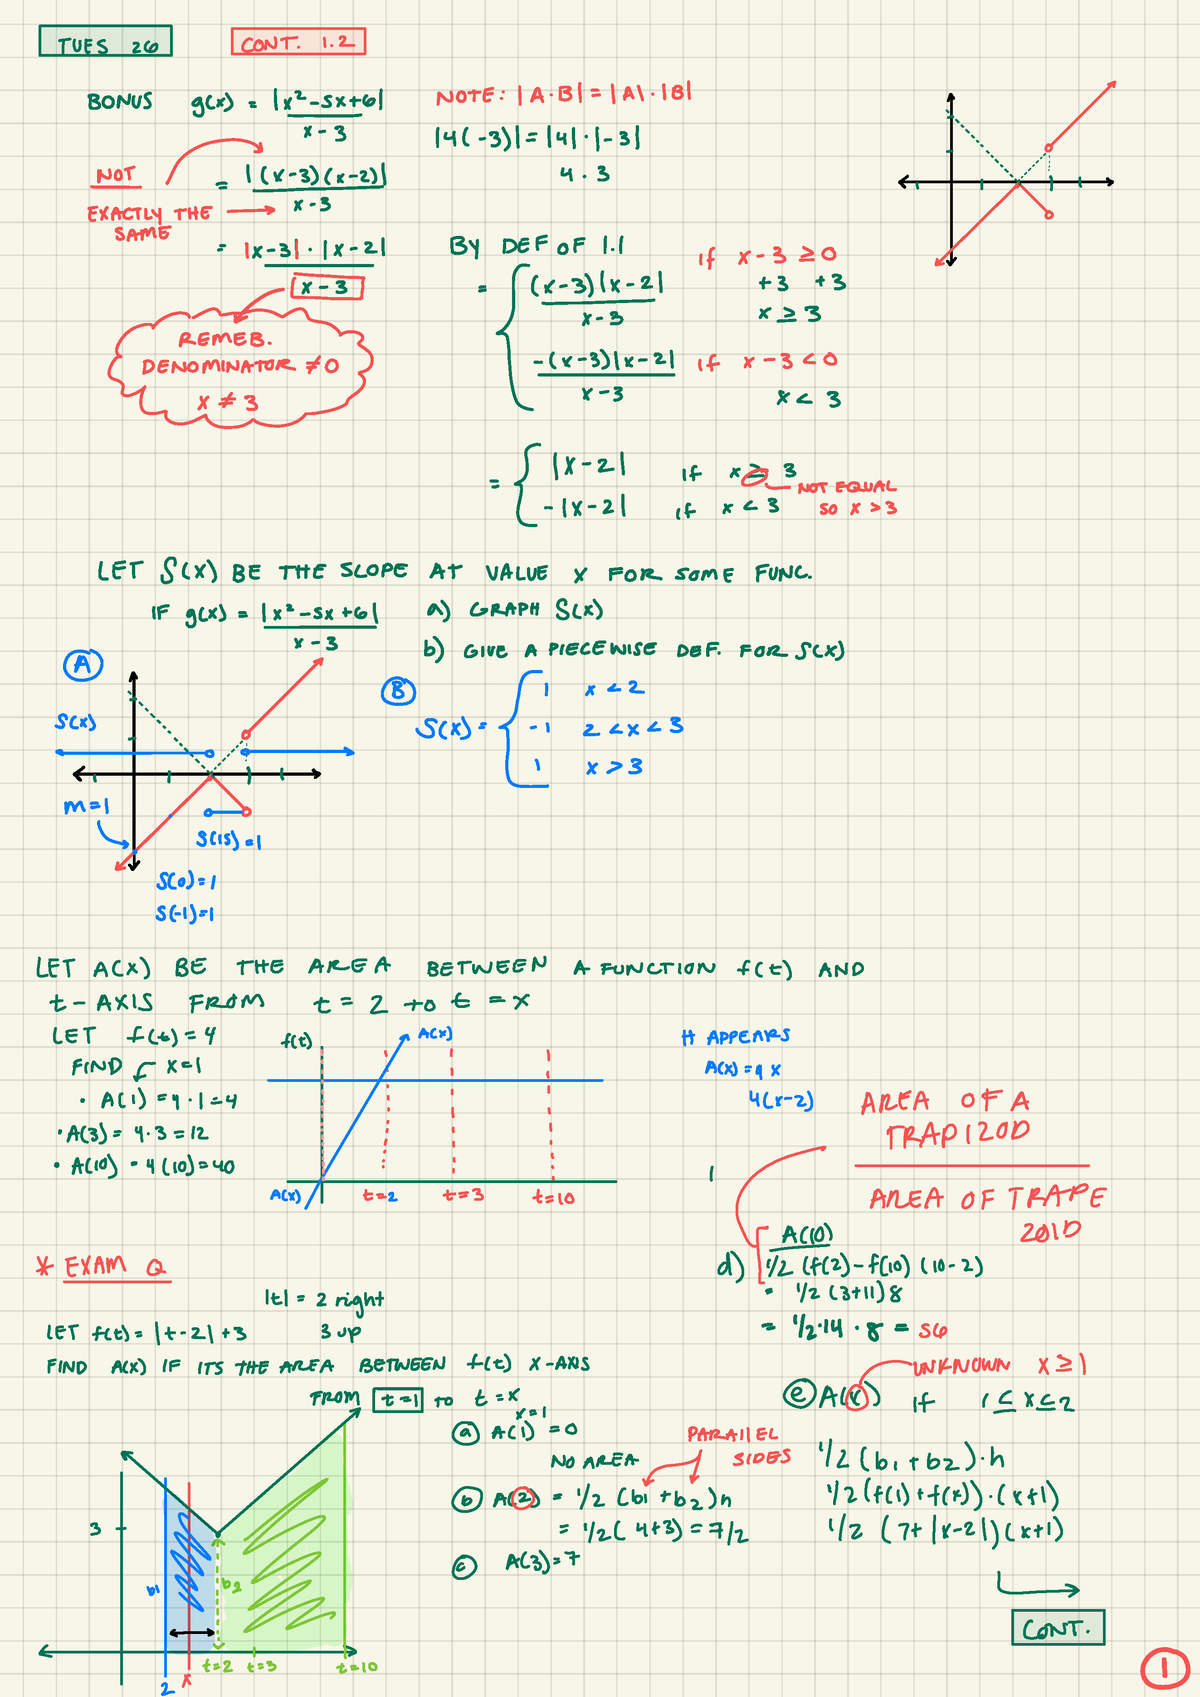 TUES 26
CONT. 1.2
BONUS g(x) = |x²-5x+6| / x-3
NOTE: |A·B| = |A|·|B|
|4(-3)| = |4|·|-3|
4·3
NOT
EXACTLY THE
SAME
= |(x-3)(x-2)| / x-3
= |x-3|·|x-2| / x-3
REMEB.
DENOMINATOR ≠0
x ≠ 3
BY DEF OF 1.1
= { (x-3)|x-2| / x-3 if x-3 ≥0
+3 +3
x ≥ 3
-(x-3)|x-2| / x-3 if x-3<0
x < 3
= { |x-2| if x ≥ 3
NOT EQUAL
SO x >3
-|x-2| if x < 3
LET S(X) BE THE SLOPE AT VALUE X FOR SOME FUNC.
IF g(x) = |x²-5x+6| / x-3
a) GRAPH S(x)
b) GIVE A PIECEWISE DEF. FOR S(X)
A
S(x)
m=1
S(15)=1
S(0)=1
S(-1)=1
B
S(X) = { 1 x<2
-1 2<x<3
1 x>3
LET A(X) BE THE AREA BETWEEN A FUNCTION f(t) AND
t-AXIS FROM t = 2 to t = x
LET f(t)=4
FIND x=1
• A(1) = 4·1=4
• A(3) = 4·3=12
• A(10) = 4(10)=40
f(t)
A(x)
A(x)
t=2
t=3
t=10
It APPEARS
A(x) = 4x
4(x-2)
AREA OF A
TRAPIZOD
AREA OF TRAPE
ZOID
1
d) A(10)
1/2 (f(2)-f(10) (10-2)
= 1/2 (3+11)8
= 1/2·14·8 = 56
* EXAM Q
|t| = 2 right
3 up
LET f(t) = |t-2|+3
FIND A(x) IF ITS THE AREA BETWEEN f(t) X-AXIS
FROM t=1 TO t=x
3
b1
b2
2
x
t=2
t=3
t=10
x=1
a A(1) = 0
NO AREA
PARAllEL
SIDES
b A(2) = 1/2 (b1+b2)h
= 1/2 (4+3) = 7/2
c A(3)=7
UNKNOWN x≥1
e A(x) if 1≤x≤2
1/2 (b1+b2)·h
1/2 (f(1)+f(x))·(x+1)
1/2 (7+|x-2|)(x+1)
CONT.
1